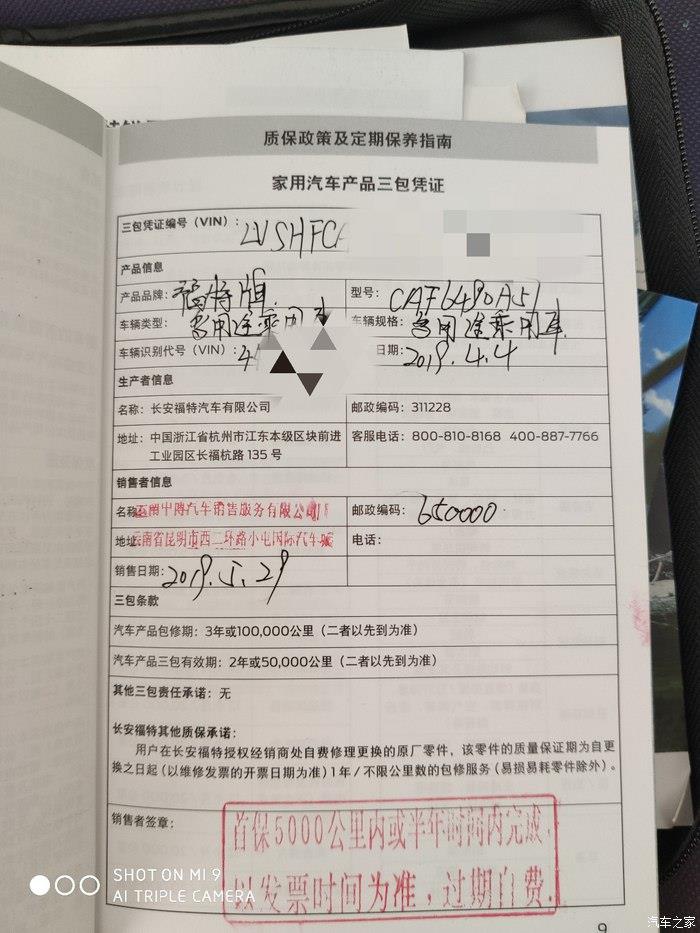 质保政策及定期保养指南
家用汽车产品三包凭证
三包凭证编号（VIN）：LVSHFC
产品信息
产品品牌：福特牌 型号：CAF6480A51
车辆类型：多用途乘用车 车辆规格：多用途乘用车
车辆识别代号（VIN）： 日期：2019.4.4
生产者信息
名称：长安福特汽车有限公司 邮政编码：311228
地址：中国浙江省杭州市江东本级区块前进 客服电话：800-810-8168 400-887-7766
工业园区长福杭路 135 号
销售者信息
名称 汽车销售服务有限公司 邮政编码：650000
地址 云南省昆明市西二环路小屯国际汽车城 电话：
销售日期：2019.5.29
三包条款
汽车产品包修期：3年或100,000公里（二者以先到为准）
汽车产品三包有效期：2年或50,000公里（二者以先到为准）
其他三包责任承诺：无
长安福特其他质保承诺：
用户在长安福特授权经销商处自费修理更换的原厂零件，该零件的质量保证期为自更
换之日起（以维修发票的开票日期为准）1年/不限公里数的包修服务（易损易耗零件除外）。
销售者签章：
首保5000公里内或半年时间内完成，
以发票时间为准，过期自费。
9
SHOT ON MI 9
AI TRIPLE CAMERA
汽车之家